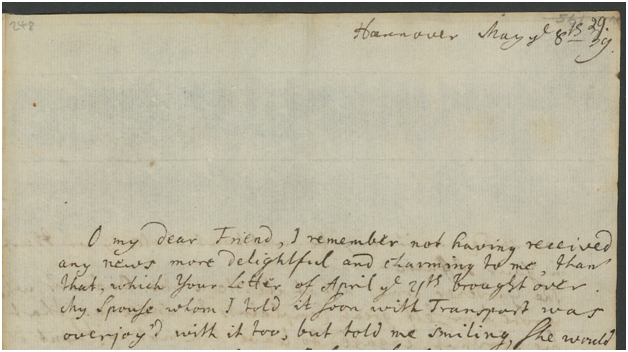 248
Hannover May yͤ 8 15 29.
39.
O my dear Friend, I remember not having received
any news more delightful and charming to me, than
that, which Your Letter of April yͤ 21th brought over.
My Spouse whom I told it soon with Transport was
overjoy'd with it too, but told me smiling, She would